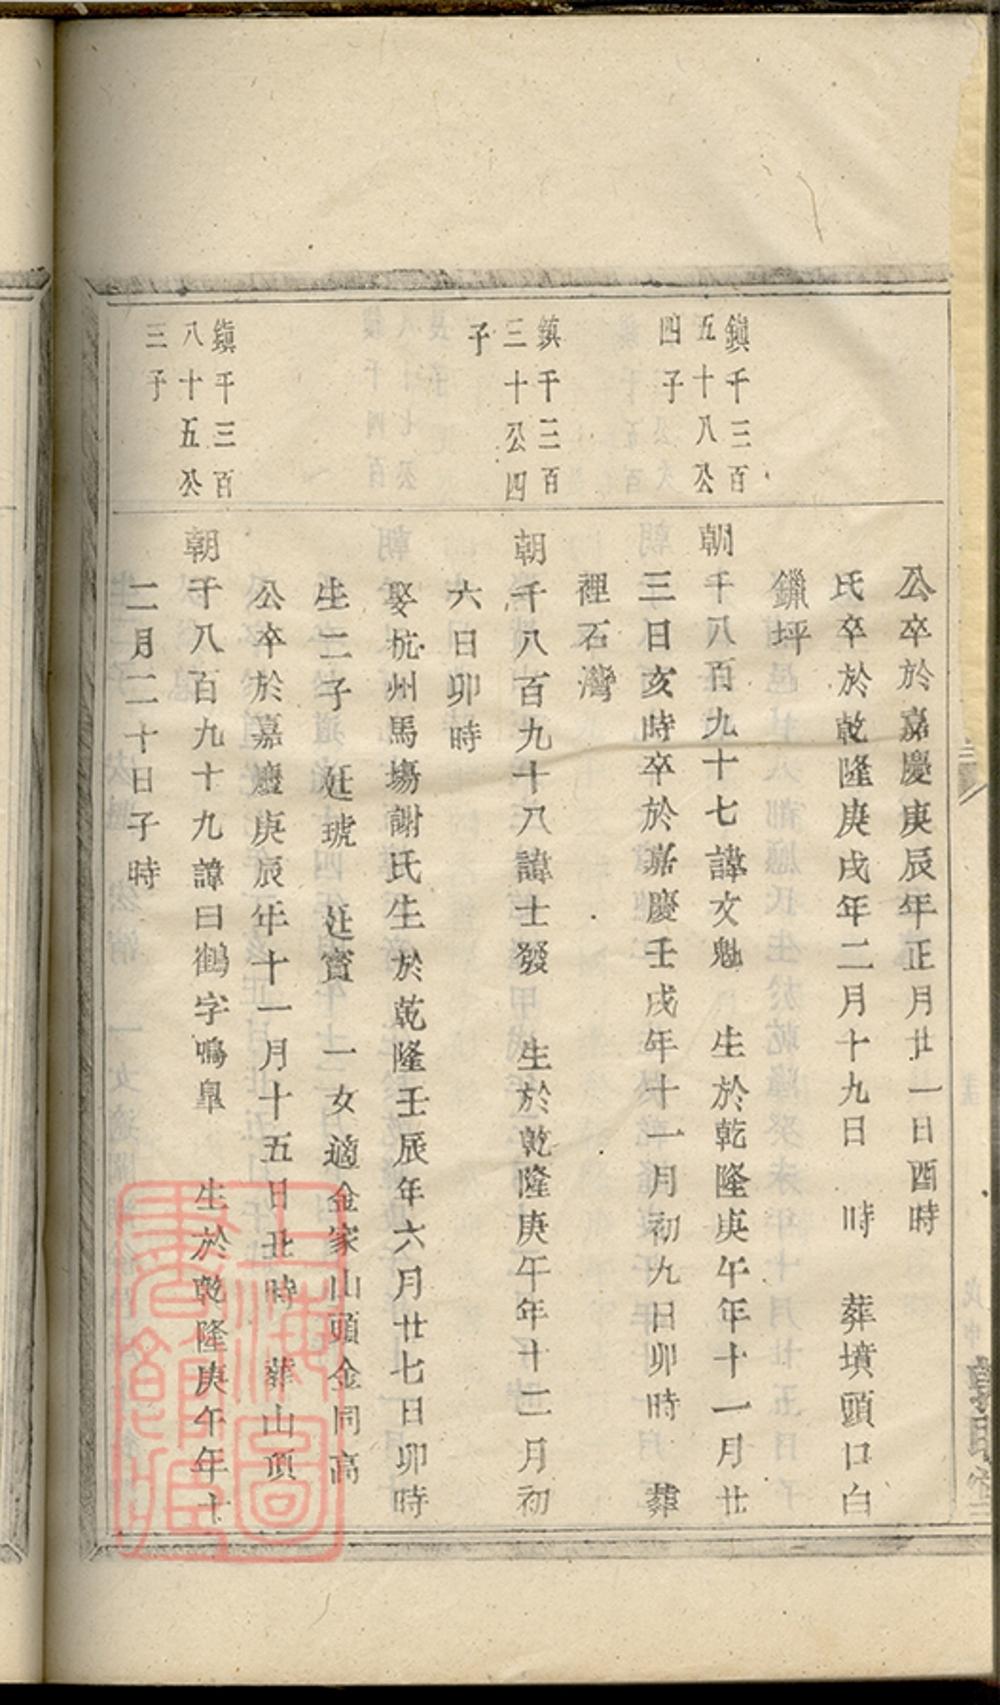 公卒於嘉慶庚辰年正月廿一日酉時
氏卒於乾隆庚戌年二月十九日 時 葬墳頭口白
鑞坪
鎮千三百
五十八公
四子
朝千八百九十七諱文魁 生於乾隆庚午年十一月廿
三日亥時卒於嘉慶壬戌年十一月初九日卯時 葬
裡石灣
鎮千三百
三十公四
子
朝千八百九十八諱士發 生於乾隆庚午年十二月初
六日卯時
娶杭州馬塲謝氏生於乾隆壬辰年六月廿七日卯時
生二子 廷琥 廷賓 一女適金家山頭金同高
公卒於嘉慶庚辰年十一月十五日丑時 葬山頂
鎮千三百
八十五公
三子
朝千八百九十九諱曰鶴字鳴臯 生於乾隆庚午年十
二月二十日子時
上海圖
書館藏